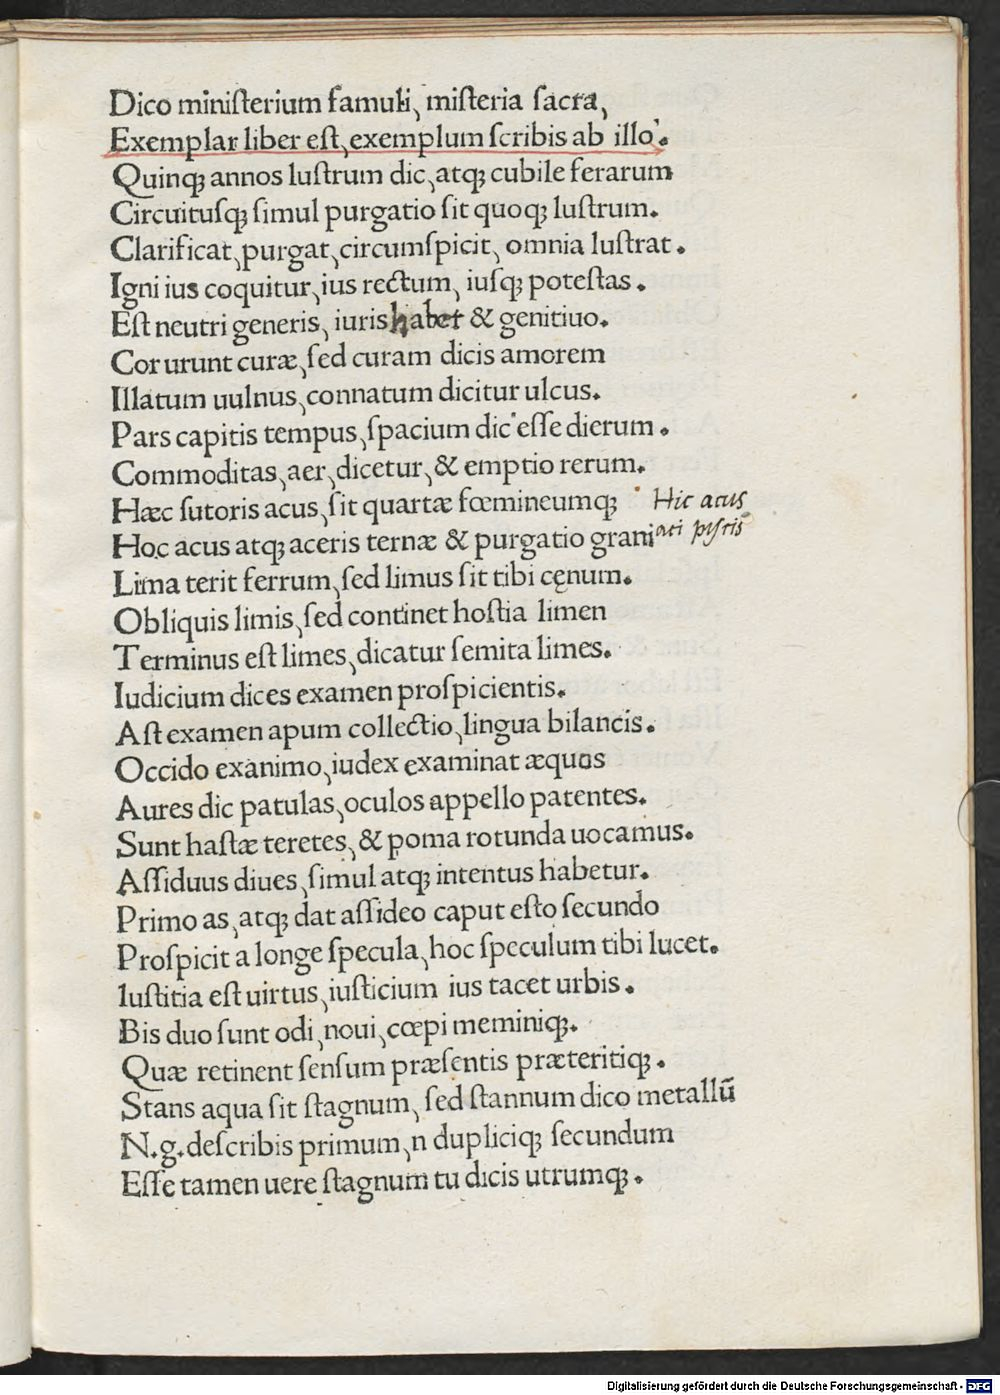 Dico miniſterium famuli, miſteria ſacra,
Exemplar liber eſt, exemplum ſcribis ab illo.
Quinqꝫ annos luſtrum dic, atqꝫ cubile ferarum
Circuituſqꝫ ſimul purgatio ſit quoqꝫ luſtrum.
Clarificat, purgat, circumſpicit, omnia luſtrat.
Igni ius coquitur, ius rectum, iuſqꝫ poteſtas.
Eſt neutri generis, iuris habet & genitiuo.
Cor urunt curæ, ſed curam dicis amorem
Illatum uulnus, connatum dicitur ulcus.
Pars capitis tempus, ſpacium dic eſſe dierum.
Commoditas, aer, dicetur, & emptio rerum.
Hæc ſutoris acus, ſit quartæ fœmineumqꝫ Hic acus
Hoc acus atqꝫ aceris ternæ & purgatio grani aci piſcis
Lima terit ferrum, ſed limus ſit tibi cęnum.
Obliquis limis, ſed continet hoſtia limen
Terminus eſt limes, dicatur ſemita limes.
Iudicium dices examen proſpicientis.
Aſt examen apum collectio, lingua bilancis.
Occido exanimo, iudex examinat æquos
Aures dic patulas, oculos appello patentes.
Sunt haſtæ teretes, & poma rotunda uocamus.
Aſſiduus diues, ſimul atqꝫ intentus habetur.
Primo as, atqꝫ dat aſſideo caput eſto ſecundo
Proſpicit a longe ſpecula, hoc ſpeculum tibi lucet.
Iuſtitia eſt uirtus, iuſticium ius tacet urbis.
Bis duo ſunt odi, noui, cœpi meminiqꝫ.
Quæ retinent ſenſum præſentis præteritiqꝫ.
Stans aqua ſit ſtagnum, ſed ſtannum dico metallū
N.g. deſcribis primum, n dupliciqꝫ ſecundum
Eſſe tamen uere ſtagnum tu dicis utrumqꝫ.
Digitalisierung gefördert durch die Deutsche Forschungsgemeinschaft - DFG